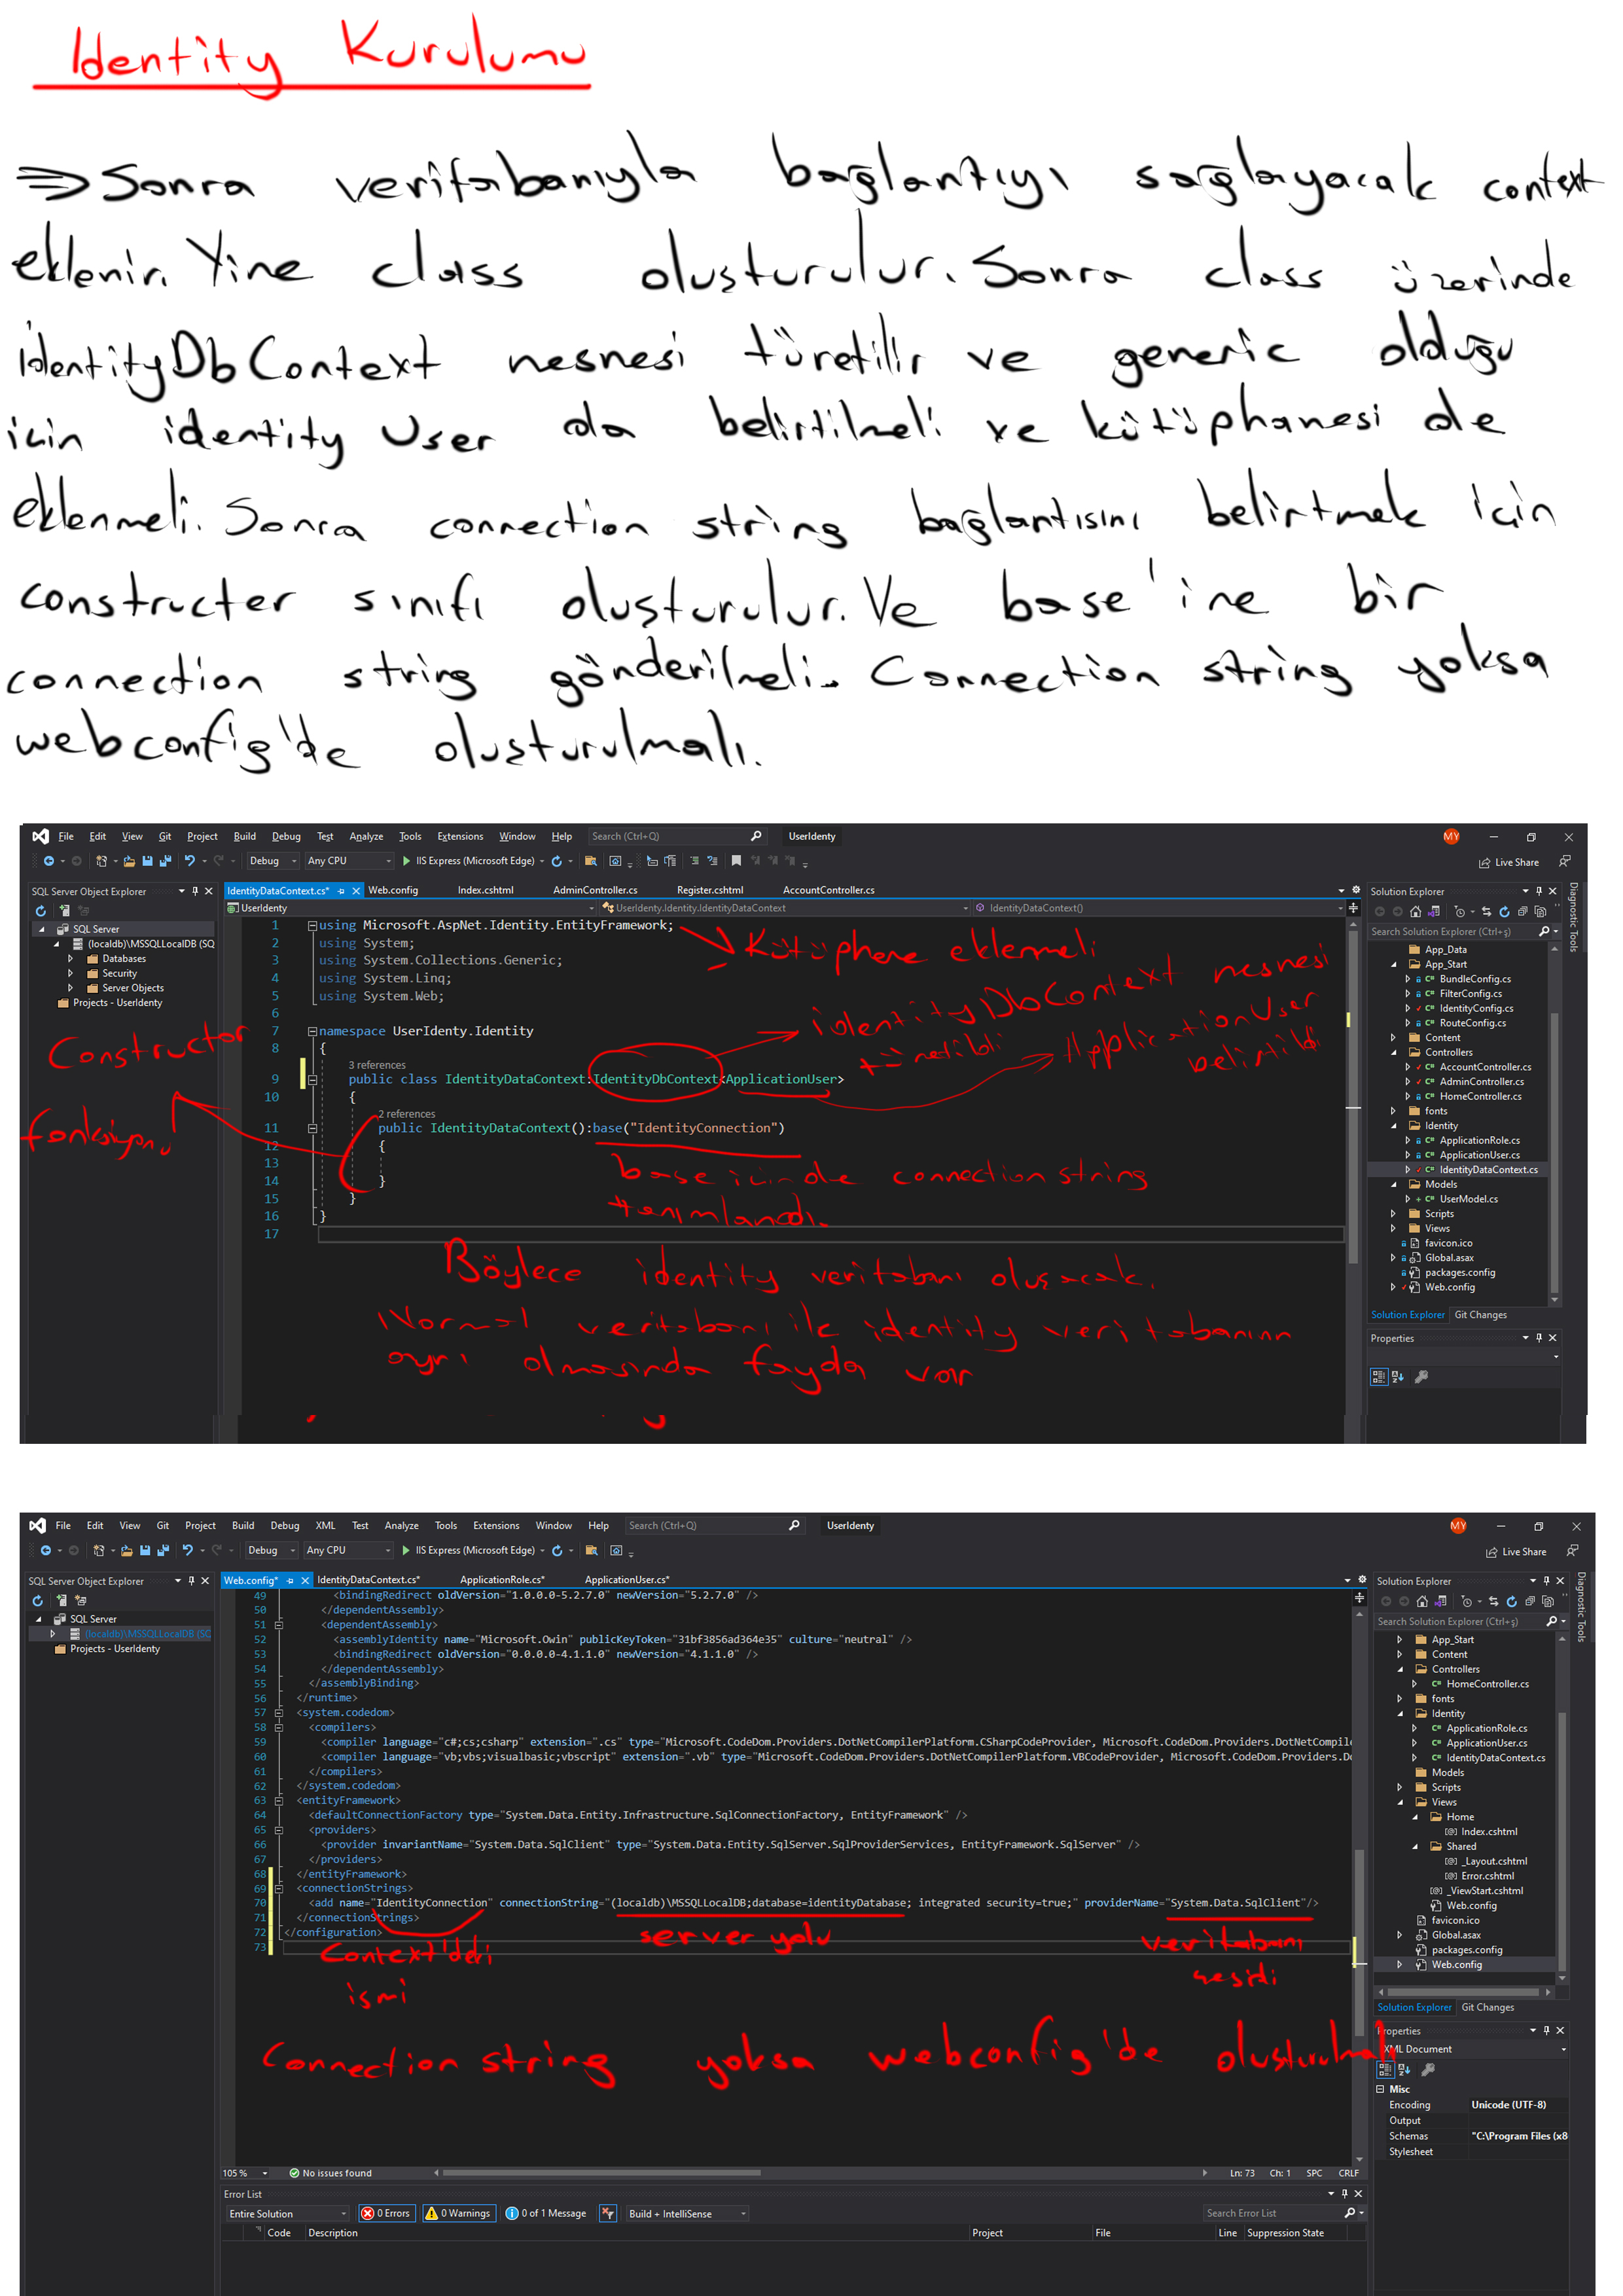 Identity Kurulumu
⇒ Sonra veritabanıyla bağlantıyı sağlayacak context
eklenir. Yine class oluşturulur. Sonra class üzerinde
identityDbContext nesnesi türetilir ve generic olduğu
için identity User da belirtilmeli ve kütüphanesi de
eklenmeli. Sonra connection string bağlantısını belirtmek için
constructer sınıfı oluşturulur. Ve base'ine bir
connection string gönderilmeli. Connection string yoksa
webconfig'de oluşturulmalı.
File Edit View Git Project Build Debug Test Analyze Tools Extensions Window Help Search (Ctrl+Q) UserIdenty MY
Debug Any CPU IIS Express (Microsoft Edge) Live Share
SQL Server Object Explorer
SQL Server
(localdb)\MSSQLLocalDB (SQ
Databases
Security
Server Objects
Projects - UserIdenty
IdentityDataContext.cs* Web.config Index.cshtml AdminController.cs Register.cshtml AccountController.cs
UserIdenty UserIdenty.Identity.IdentityDataContext IdentityDataContext()
1 using Microsoft.AspNet.Identity.EntityFramework;
2 using System;
3 using System.Collections.Generic;
4 using System.Linq;
5 using System.Web;
6
7 namespace UserIdenty.Identity
8 {
3 references
9 public class IdentityDataContext:IdentityDbContext<ApplicationUser>
10 {
2 references
11 public IdentityDataContext():base("IdentityConnection")
12 {
13
14 }
15 }
16 }
17
Kütüphane eklenmeli
identityDbContext nesnesi
türetildi
ApplicationUser
belirtildi
Constructor
fonksiyonu
base içinde connection string
tanımlandı.
Böylece identity veritabanı oluşacak.
Normal veritabanı ile identity veritabanının
ayrı olmasında fayda var
Solution Explorer
Search Solution Explorer (Ctrl+ş)
App_Data
App_Start
BundleConfig.cs
FilterConfig.cs
IdentityConfig.cs
RouteConfig.cs
Content
Controllers
AccountController.cs
AdminController.cs
HomeController.cs
fonts
Identity
ApplicationRole.cs
ApplicationUser.cs
IdentityDataContext.cs
Models
UserModel.cs
Scripts
Views
favicon.ico
Global.asax
packages.config
Web.config
Solution Explorer Git Changes
Properties
Diagnostic Tools
File Edit View Git Project Build Debug XML Test Analyze Tools Extensions Window Help Search (Ctrl+Q) UserIdenty MY
Debug Any CPU IIS Express (Microsoft Edge) Live Share
SQL Server Object Explorer
SQL Server
(localdb)\MSSQLLocalDB (SQ
Projects - UserIdenty
Web.config* IdentityDataContext.cs* ApplicationRole.cs* ApplicationUser.cs*
49 <bindingRedirect oldVersion="1.0.0.0-5.2.7.0" newVersion="5.2.7.0" />
50 </dependentAssembly>
51 <dependentAssembly>
52 <assemblyIdentity name="Microsoft.Owin" publicKeyToken="31bf3856ad364e35" culture="neutral" />
53 <bindingRedirect oldVersion="0.0.0.0-4.1.1.0" newVersion="4.1.1.0" />
54 </dependentAssembly>
55 </assemblyBinding>
56 </runtime>
57 <system.codedom>
58 <compilers>
59 <compiler language="c#;cs;csharp" extension=".cs" type="Microsoft.CodeDom.Providers.DotNetCompilerPlatform.CSharpCodeProvider, Microsoft.CodeDom.Providers.DotNetCompil
60 <compiler language="vb;vbs;visualbasic;vbscript" extension=".vb" type="Microsoft.CodeDom.Providers.DotNetCompilerPlatform.VBCodeProvider, Microsoft.CodeDom.Providers.Do
61 </compilers>
62 </system.codedom>
63 <entityFramework>
64 <defaultConnectionFactory type="System.Data.Entity.Infrastructure.SqlConnectionFactory, EntityFramework" />
65 <providers>
66 <provider invariantName="System.Data.SqlClient" type="System.Data.Entity.SqlServer.SqlProviderServices, EntityFramework.SqlServer" />
67 </providers>
68 </entityFramework>
69 <connectionStrings>
70 <add name="IdentityConnection" connectionString="(localdb)\MSSQLLocalDB;database=identityDatabase; integrated security=true;" providerName="System.Data.SqlClient"/>
71 </connectionStrings>
72 </configuration>
73
Context'deki
ismi
server yolu
veritabanı
çeşidi
Connection string yoksa webconfig'de oluşturulmalı
105 % No issues found Ln: 73 Ch: 1 SPC CRLF
Error List
Entire Solution 0 Errors 0 Warnings 0 of 1 Message Build + IntelliSense Search Error List
Code Description Project File Line Suppression State
Solution Explorer
Search Solution Explorer (Ctrl+ş)
App_Start
Content
Controllers
HomeController.cs
fonts
Identity
ApplicationRole.cs
ApplicationUser.cs
IdentityDataContext.cs
Models
Scripts
Views
Home
Index.cshtml
Shared
_Layout.cshtml
Error.cshtml
_ViewStart.cshtml
Web.config
favicon.ico
Global.asax
packages.config
Web.config
Solution Explorer Git Changes
Properties
XML Document
Misc
Encoding Unicode (UTF-8)
Output
Schemas "C:\Program Files (x8
Stylesheet
Diagnostic Tools